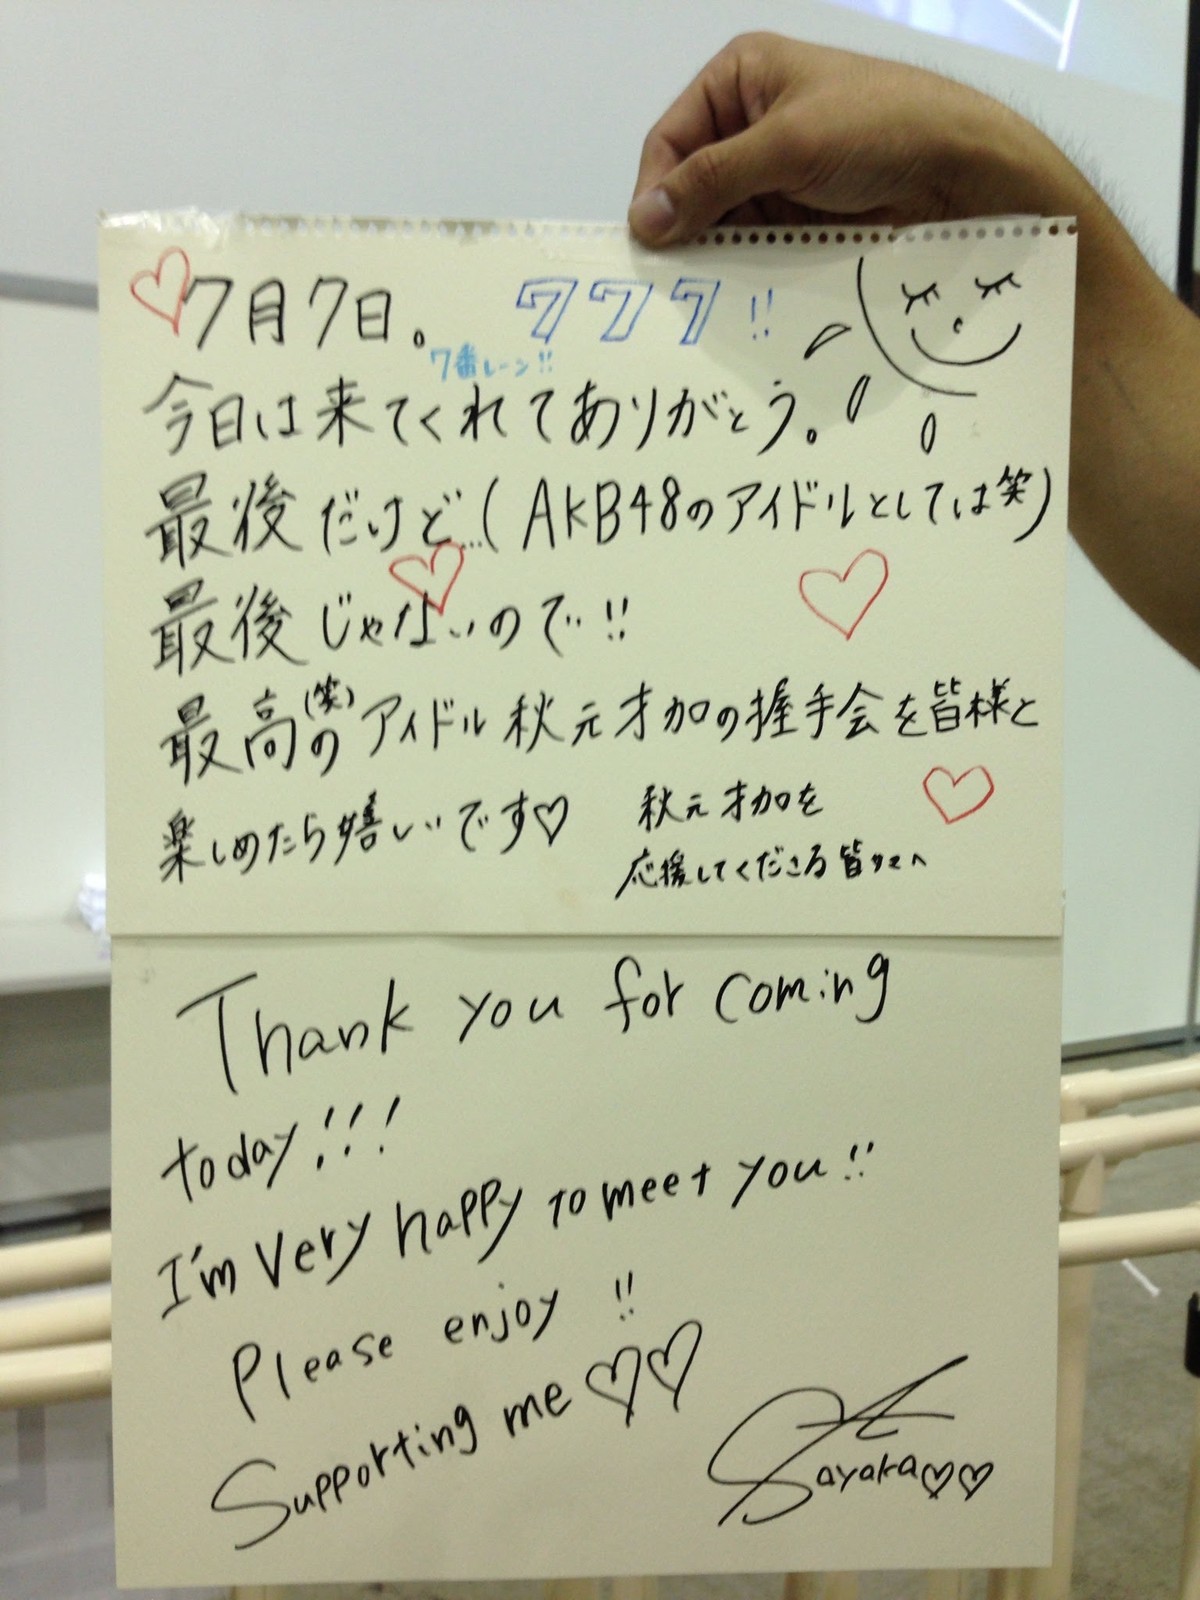 ♡7月7日。 777!!
7番レーン!!
今日は来てくれてありがとう。
最後だけど…(AKB48のアイドルとしては笑)
最後じゃないので!!
最高の(笑)アイドル秋元才加の握手会を皆様と
楽しめたら嬉しいです♡
秋元才加を
応援してくださる皆さまへ
Thank you for coming
today!!!
I'm very happy to meet you!!
Please enjoy !!
Supporting me♡♡
Sayaka♡♡